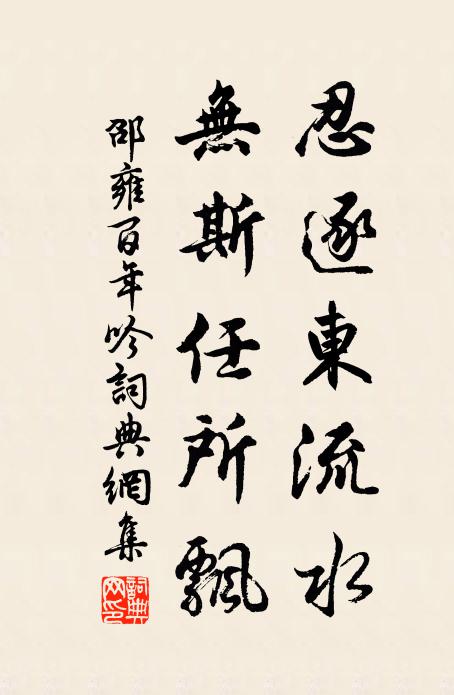 忍逐東流水
無斯任所飄
邵雍百年吟詞典網集
詞典
网印